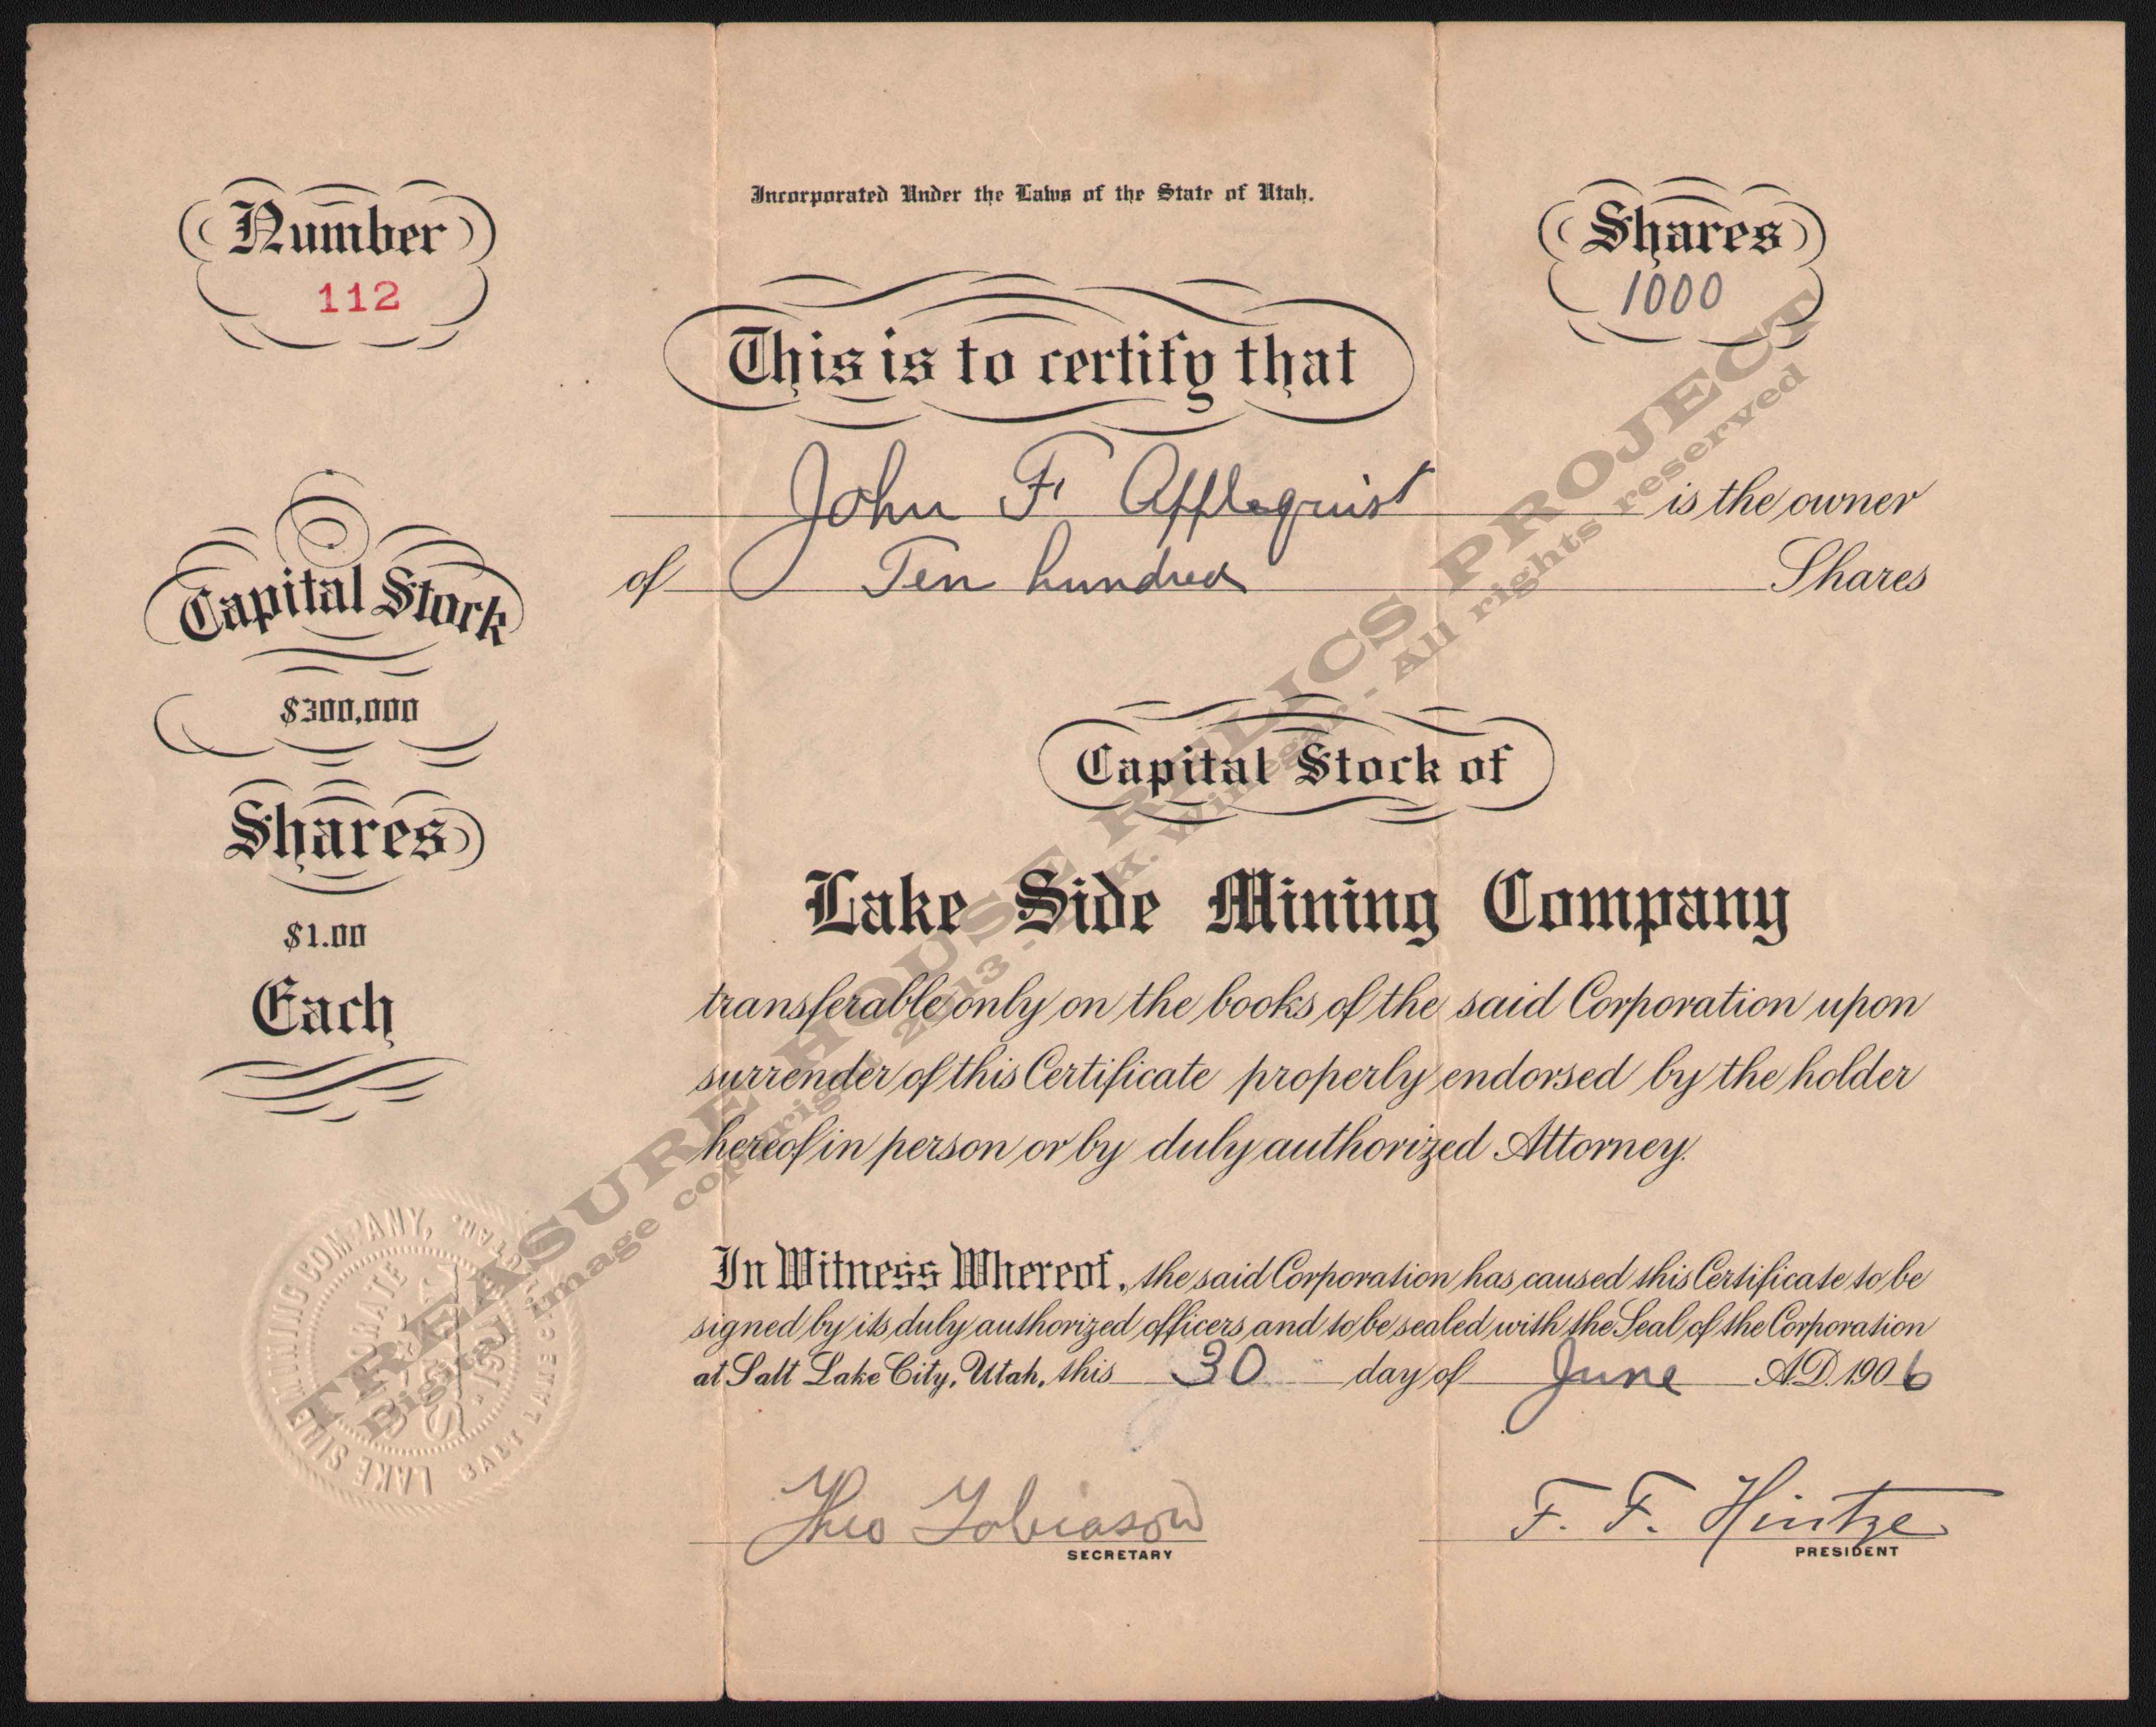 Incorporated Under the Laws of the State of Utah.
Number
112
Shares
1000
This is to certify that
John F. Applequist is the owner
of Ten hundred Shares
Capital Stock
$300,000
Shares
$1.00
Each
Capital Stock of
Lake Side Mining Company
transferable only on the books of the said Corporation upon
surrender of this Certificate properly endorsed by the holder
hereof in person or by duly authorized Attorney.
In Witness Whereof, the said Corporation has caused this Certificate to be
signed by its duly authorized officers and to be sealed with the Seal of the Corporation
at Salt Lake City, Utah, this 30 day of June A.D. 1906
Theo Tobiason
SECRETARY
F. F. Hintze
PRESIDENT
LAKE SIDE MINING COMPANY,
SALT LAKE CITY, UTAH.
CORPORATE
TREASURE HOUSE RELICS PROJECT
Digital image copyright 2013 - K. Winegar - All rights reserved